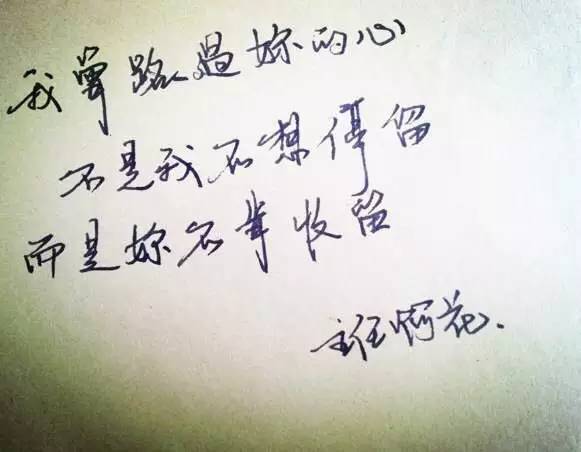 我曾路过妳的心
不是我不想停留
而是妳不肯收留
主任阿花.